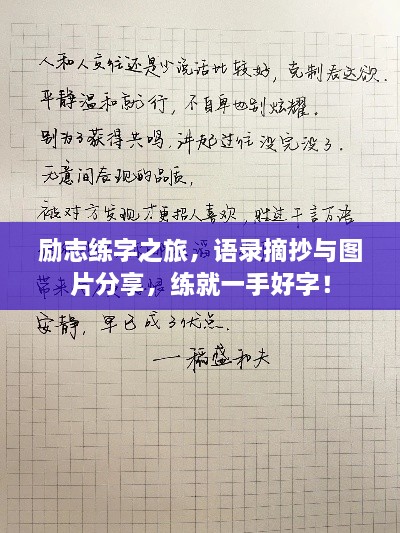 人和人交往还是少说话比较好，克制表达欲.
平静温和的行，不自卑也别炫耀.
别为了获得共鸣，讲起过往没完没了.
无意间表现的品质，
被对方发现才更招人喜欢，胜过千言万语
励志练字之旅，语录摘抄与图
片分享，练就一手好字！
带来
安静，早已成了优点.
——稻盛和夫